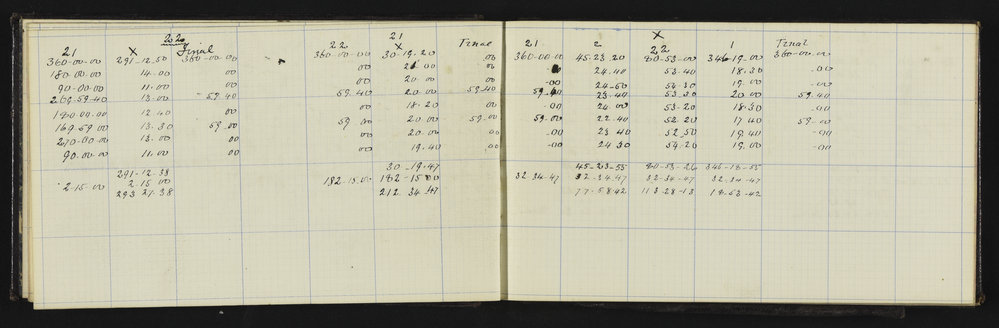 22
21 X Final
360-00-00 291-12.50 360-00-00
180.00.00 14-00 00
90-00.00 11.00 00
269-59-40 13-00 59 40
180.00.00 12.40 00
169.59 00 13.30 59.00
270-00.00 13.00 00
90.00-00 11.00 00
291-12-38
2-15-00 2-15 00
293 27-38
21
22 X Final
360-00-00 30-19-20 00
00 00
00 20.00 00
59.40 20.00 59.40
00 18.20 00
59 00 20.00 59-00
00 20.00 00
00 19.40 00
30-19-47
182-15.00 182-15 00
212.34.47
X
21 2 22 1 Final
360-00.00 45.23.20 80-53-00 346-19.00 360-00.00
24.40 53.40 18.30 -00
-00 54.30 19.00 -00
59.40 23-40 20.00 59.40
-00 24.00 53-20 18.30 -00
59.00 22.40 52.20 17.40 59-00
-00 23.40 52.50 19.40 -00
-00 24.30 54.20 19.00 -00
45-23-55 80-53-26 346-18-55
32-34-47 32-34-47 32-34-47 32-34-47
77-58-42 113-28-13 18-53-42